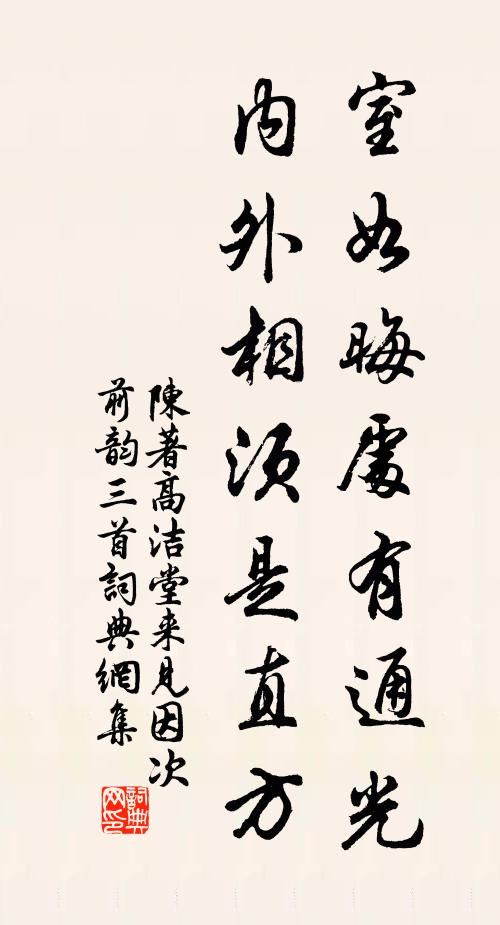 室如晦處有通光
內外相須是直方
陳著高洁堂来見因次
前韵三首詞典網集
詞典網印